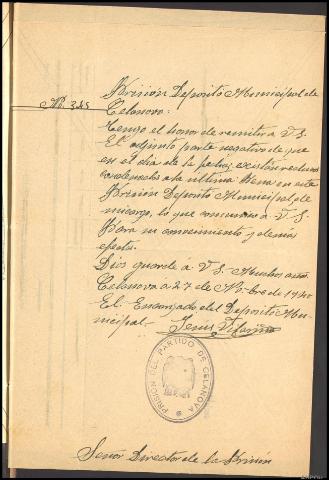 Prisión Deposito Municipal de
Nº 345
Celanova:
Tengo el honor de remitir a V.S.
El adjunto parte negativo de que
en el dia de la fecha existen reclusos
condenados a la ultima pena en este
Prisión Deposito Municipal de
mi cargo, lo que comunico a V.S.
Para su conocimiento y demás
efectos.
Dios guarde a V.S. Muchos años
Celanova a 27 de Nbre de 1940
El Encargado del Deposito Mu-
nicipal.
PRISION DEL PARTIDO DE CELANOVA
Señor Director de la Prisión